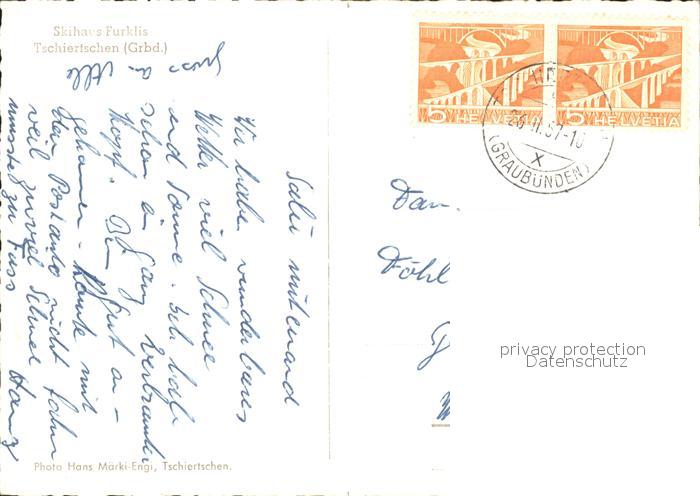 Skihaus Furklis
Tschiertschen (Grbd.)
Gruss an Alle
Salü mitenand
Wir haben wunderbares
Wetter viel Schnee
und Sonne. Ich habe
schon en ganz verbrannter
Kopf. Bin gut an-
gekommen. Konnte mit
dem Postauto nicht fahren
weil zuviel Schnee
musste zu Fuss
Photo Hans Märki-Engi, Tschiertschen.
5 HELVETIA
5 HELVETIA
26.II.57-10
X
(GRAUBÜNDEN)
Fam.
privacy protection
Datenschutz